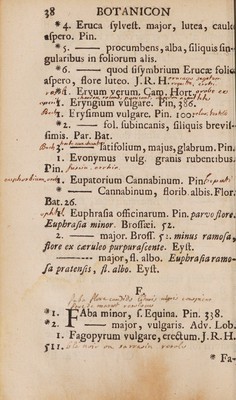 38 BOTANICON
* 4. Eruca sylvest. major, lutea, caule
aspero. Pin.
* 5. —— procumbens, alba, siliquis sin-
gularibus in foliorum alis.
* 6. —— quod sisymbrium Erucæ folio
aspero, flore luteo. J. R. H.
1. Ervum verum. Cam. Hort.
1. Eryngium vulgare. Pin. 386.
1. Erysimum vulgare. Pin. 100.
* 2. —— fol. subincanis, siliquis brevis-
simis. Par. Bat.
3. —— latifolium, majus, glabrum. Pin.
1. Evonymus vulg. granis rubentibus.
Pin.
1. Eupatorium Cannabinum. Pin
* —— Cannabinum, florib. albis. Flor.
Bat. 26.
1. Euphrasia officinarum. Pin. parvo flore.
Euphrasia minor. Brossæi. 52.
2. —— major. Bross. 51. minus ramosa,
flore ex cæruleo purpurascente. Eyst.
—— major, fl. albo. Euphrasia ramo-
sa pratensis, fl. albo. Eyst.
F
* 1. FAba minor, s. Equina. Pin. 338.
* 2. —— major, vulgaris. Adv. Lob.
1. Fagopyrum vulgare, erectum. J. R. H.
511.
* Fa-